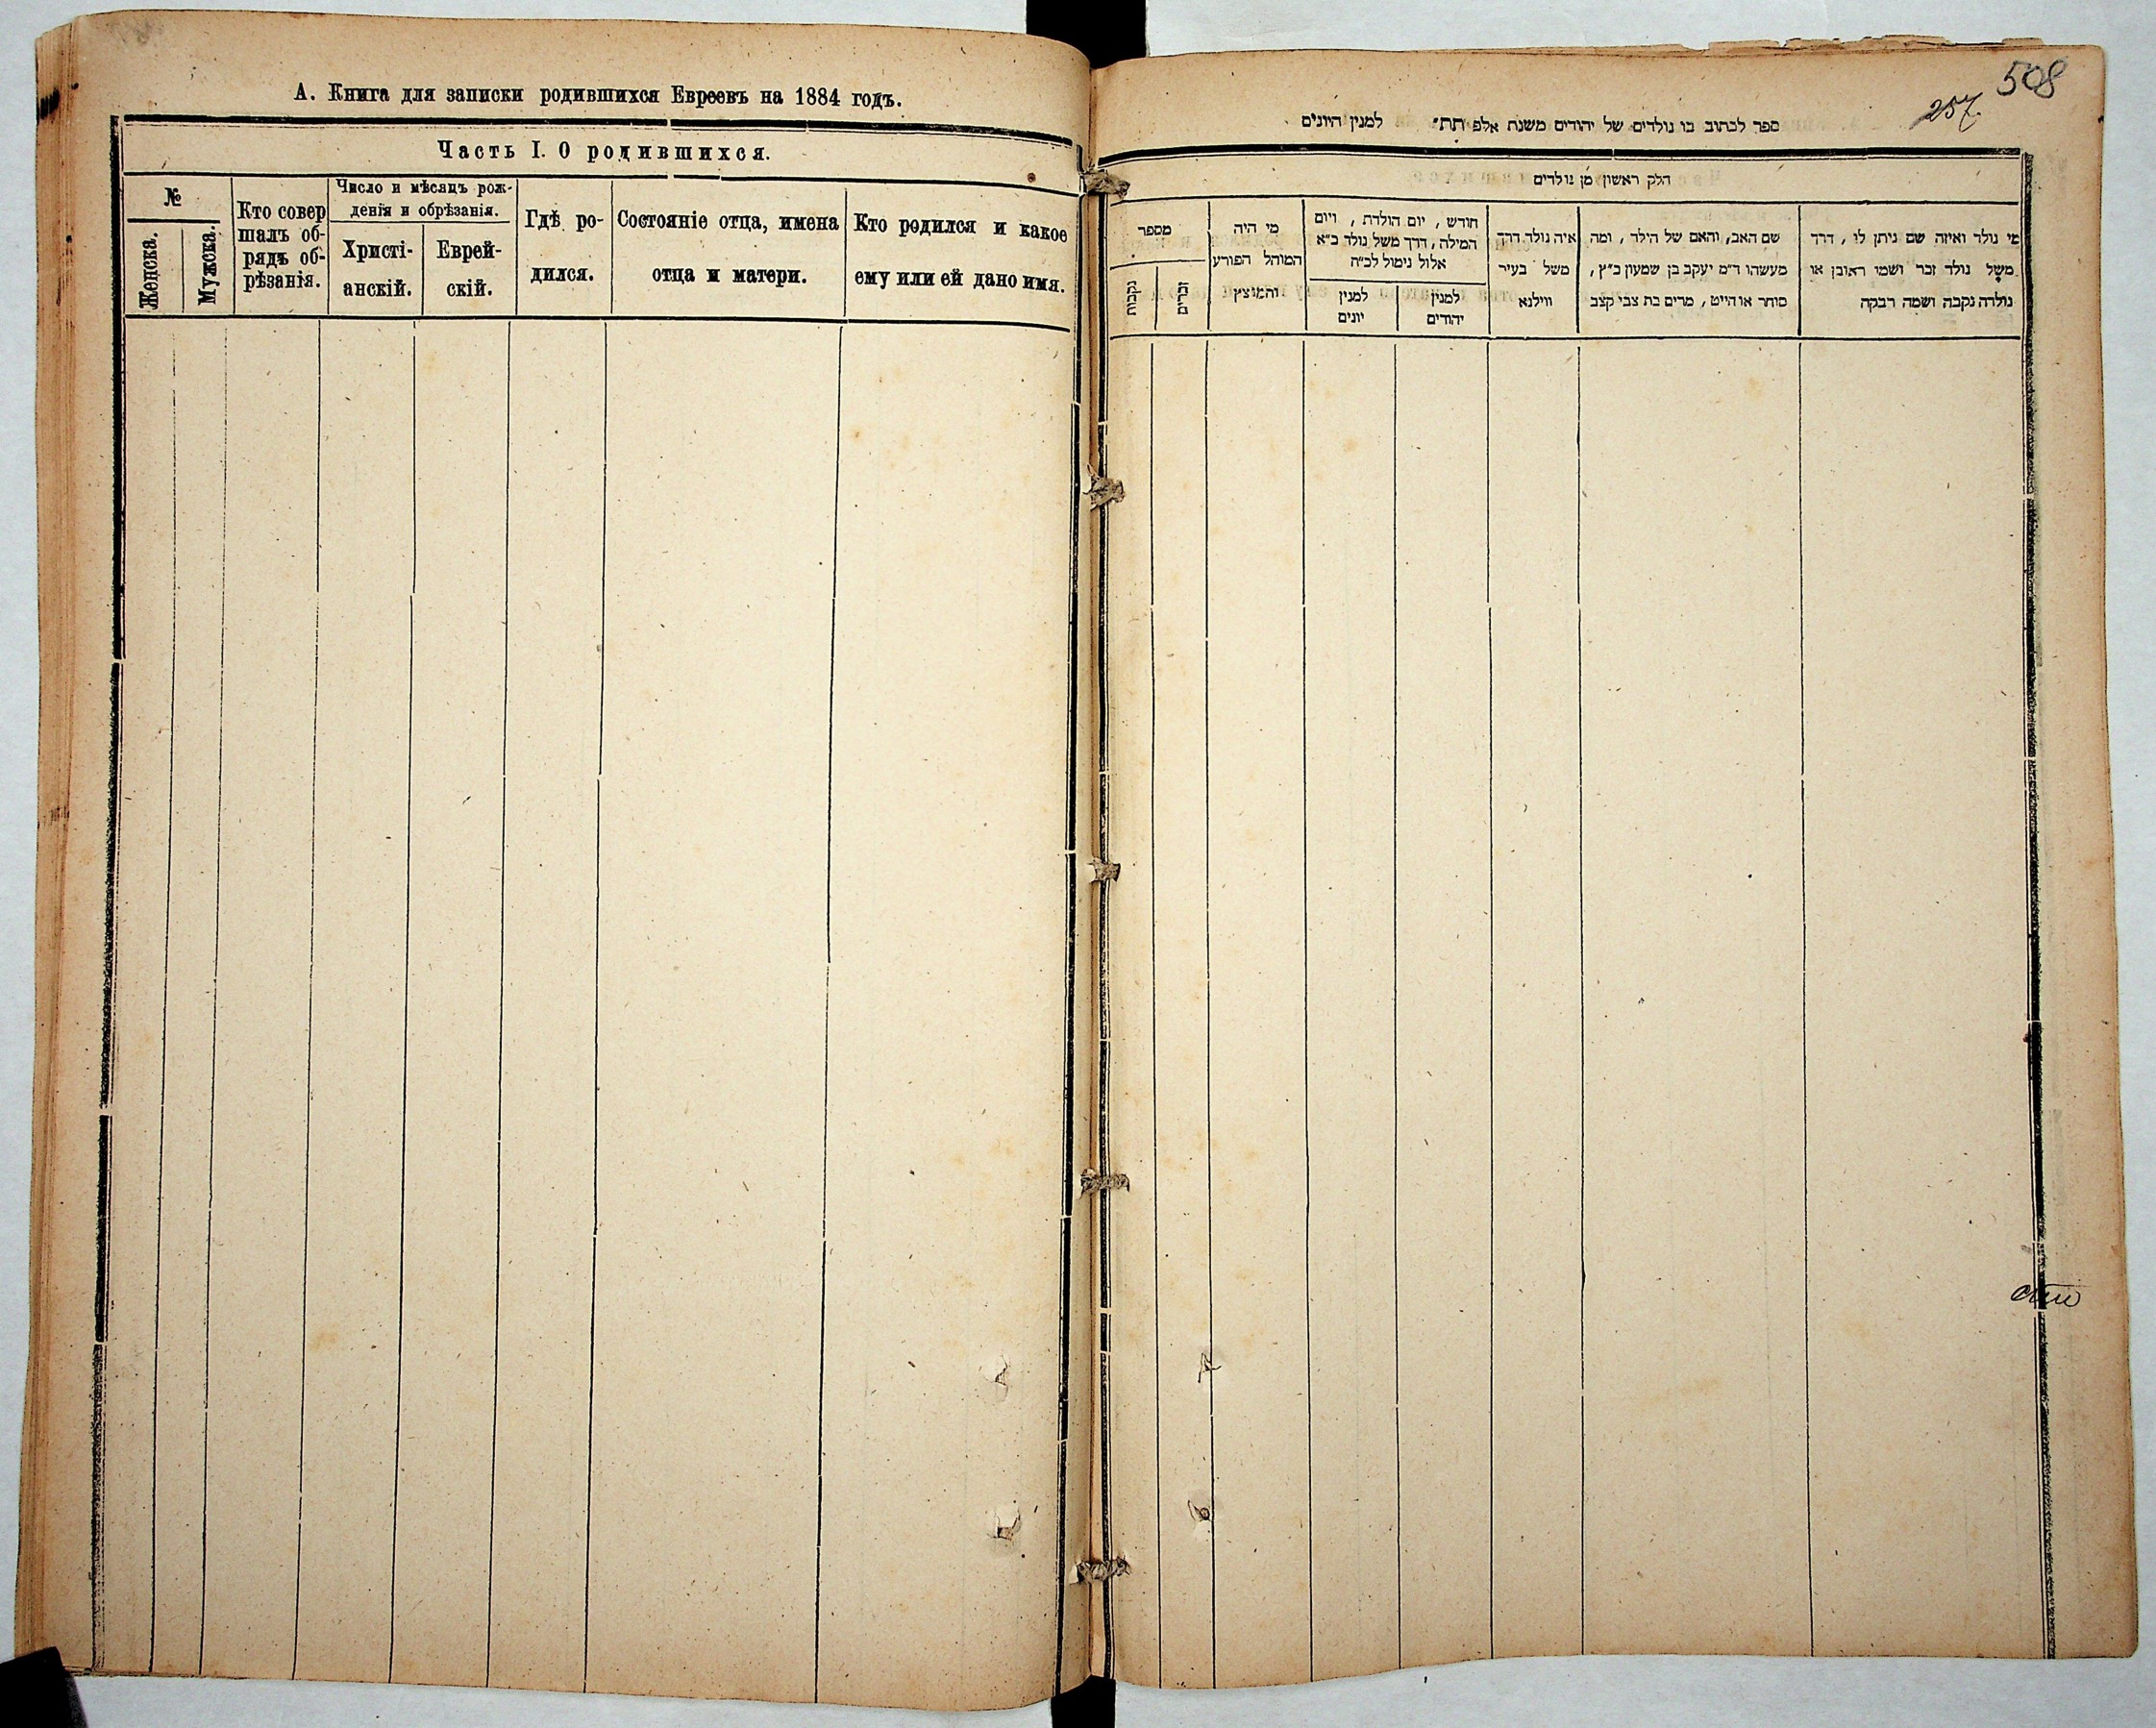 А. Книга для записки родившихся Евреевъ на 1884 годъ.
Часть I. О родившихся.
№
Женска.
Мужска.
Кто совер
шалъ об-
рядъ об-
рѣзанія.
Число и мѣсяцъ рож-
денія и обрѣзанія.
Христі-
анскій.
Еврей-
скій.
Гдѣ ро-
дился.
Состояніе отца, имена
отца и матери.
Кто родился и какое
ему или ей дано имя.
508
257
ספר לכתוב בו נולדים של יהודים משנת אלפ תת״ למנין היונים
חלק ראשון מן נולדים
מי נולד ואיזה שם ניתן לו, דרך
משל נולד זכר ושמו ראובן או
נולדה נקבה ושמה רבקה
שם האב, והאם של הילד, ומה
מעשהו ד״מ יעקב בן שמעון כ״ץ,
סוחר או חייט, מרים בת צבי קצב
איה נולד דרך
משל בעיר
ווילנא
חודש, יום הולדת, ויום
המילה, דרך משל נולד כ״א
אלול נימול לכ״ח
למנין
יהודים
למנין
יונים
מי היה
המוהל הפורע
והמוצץ
מספר
זכרים
נקבות